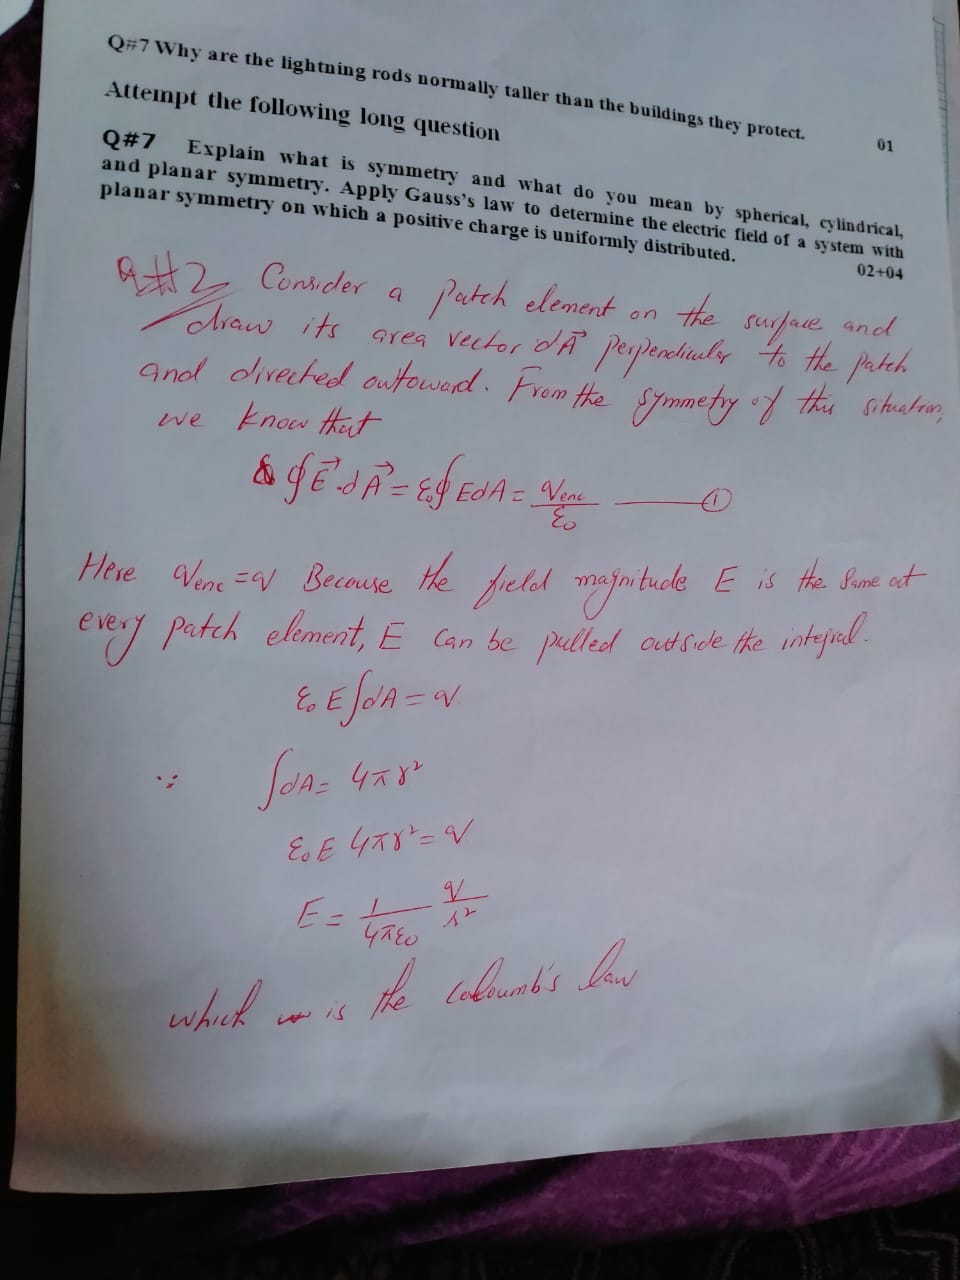 Q#7 Why are the lightning rods normally taller than the buildings they protect. 01
Attempt the following long question
Q#7 Explain what is symmetry and what do you mean by spherical, cylindrical,
and planar symmetry. Apply Gauss's law to determine the electric field of a system with
planar symmetry on which a positive charge is uniformly distributed. 02+04
Q#2 Consider a patch element on the surface and
draw its area vector dA⃗ perpendicular to the patch
and directed outoward. From the symmetry of this situation,
we know that
∮E⃗.dA⃗ = ε₀∮EdA = qenc/ε₀ ——— ①
Here qenc = q Because the field magnitude E is the same at
every patch element, E can be pulled outside the integral.
ε₀ E∫dA = q
∵ ∫dA = 4πr²
ε₀ E 4πr² = q
E = 1/4πε₀ q/r²
which is the coloumb's law